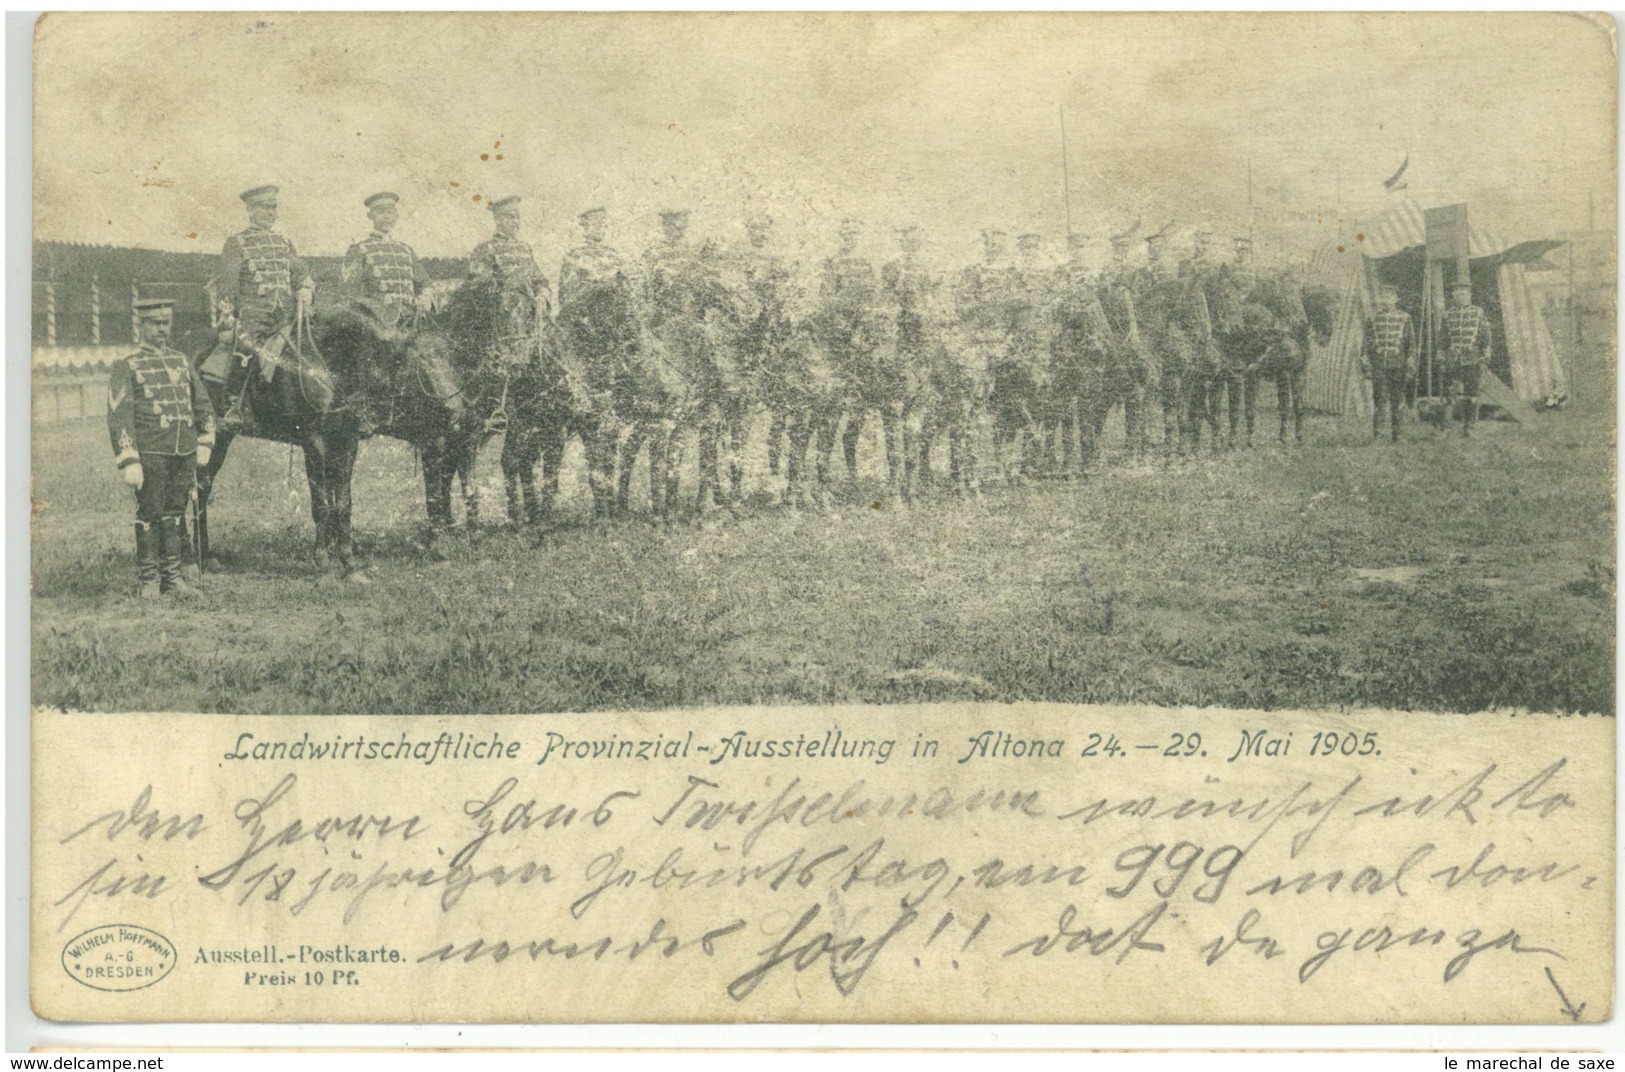 FEUERWEHR
Landwirtschaftliche Provinzial-Ausstellung in Altona 24.–29. Mai 1905.
den Herrn Hans Twisselmann wünsch ick to
sin 18 jährigen Geburtstag, een 999 mal don-
nerndes hoch!! dat de ganze
WILHELM HOFFMANN
A.-G.
* DRESDEN *
Ausstell.-Postkarte.
Preis 10 Pf.
delcampe.net
le marechal de saxe